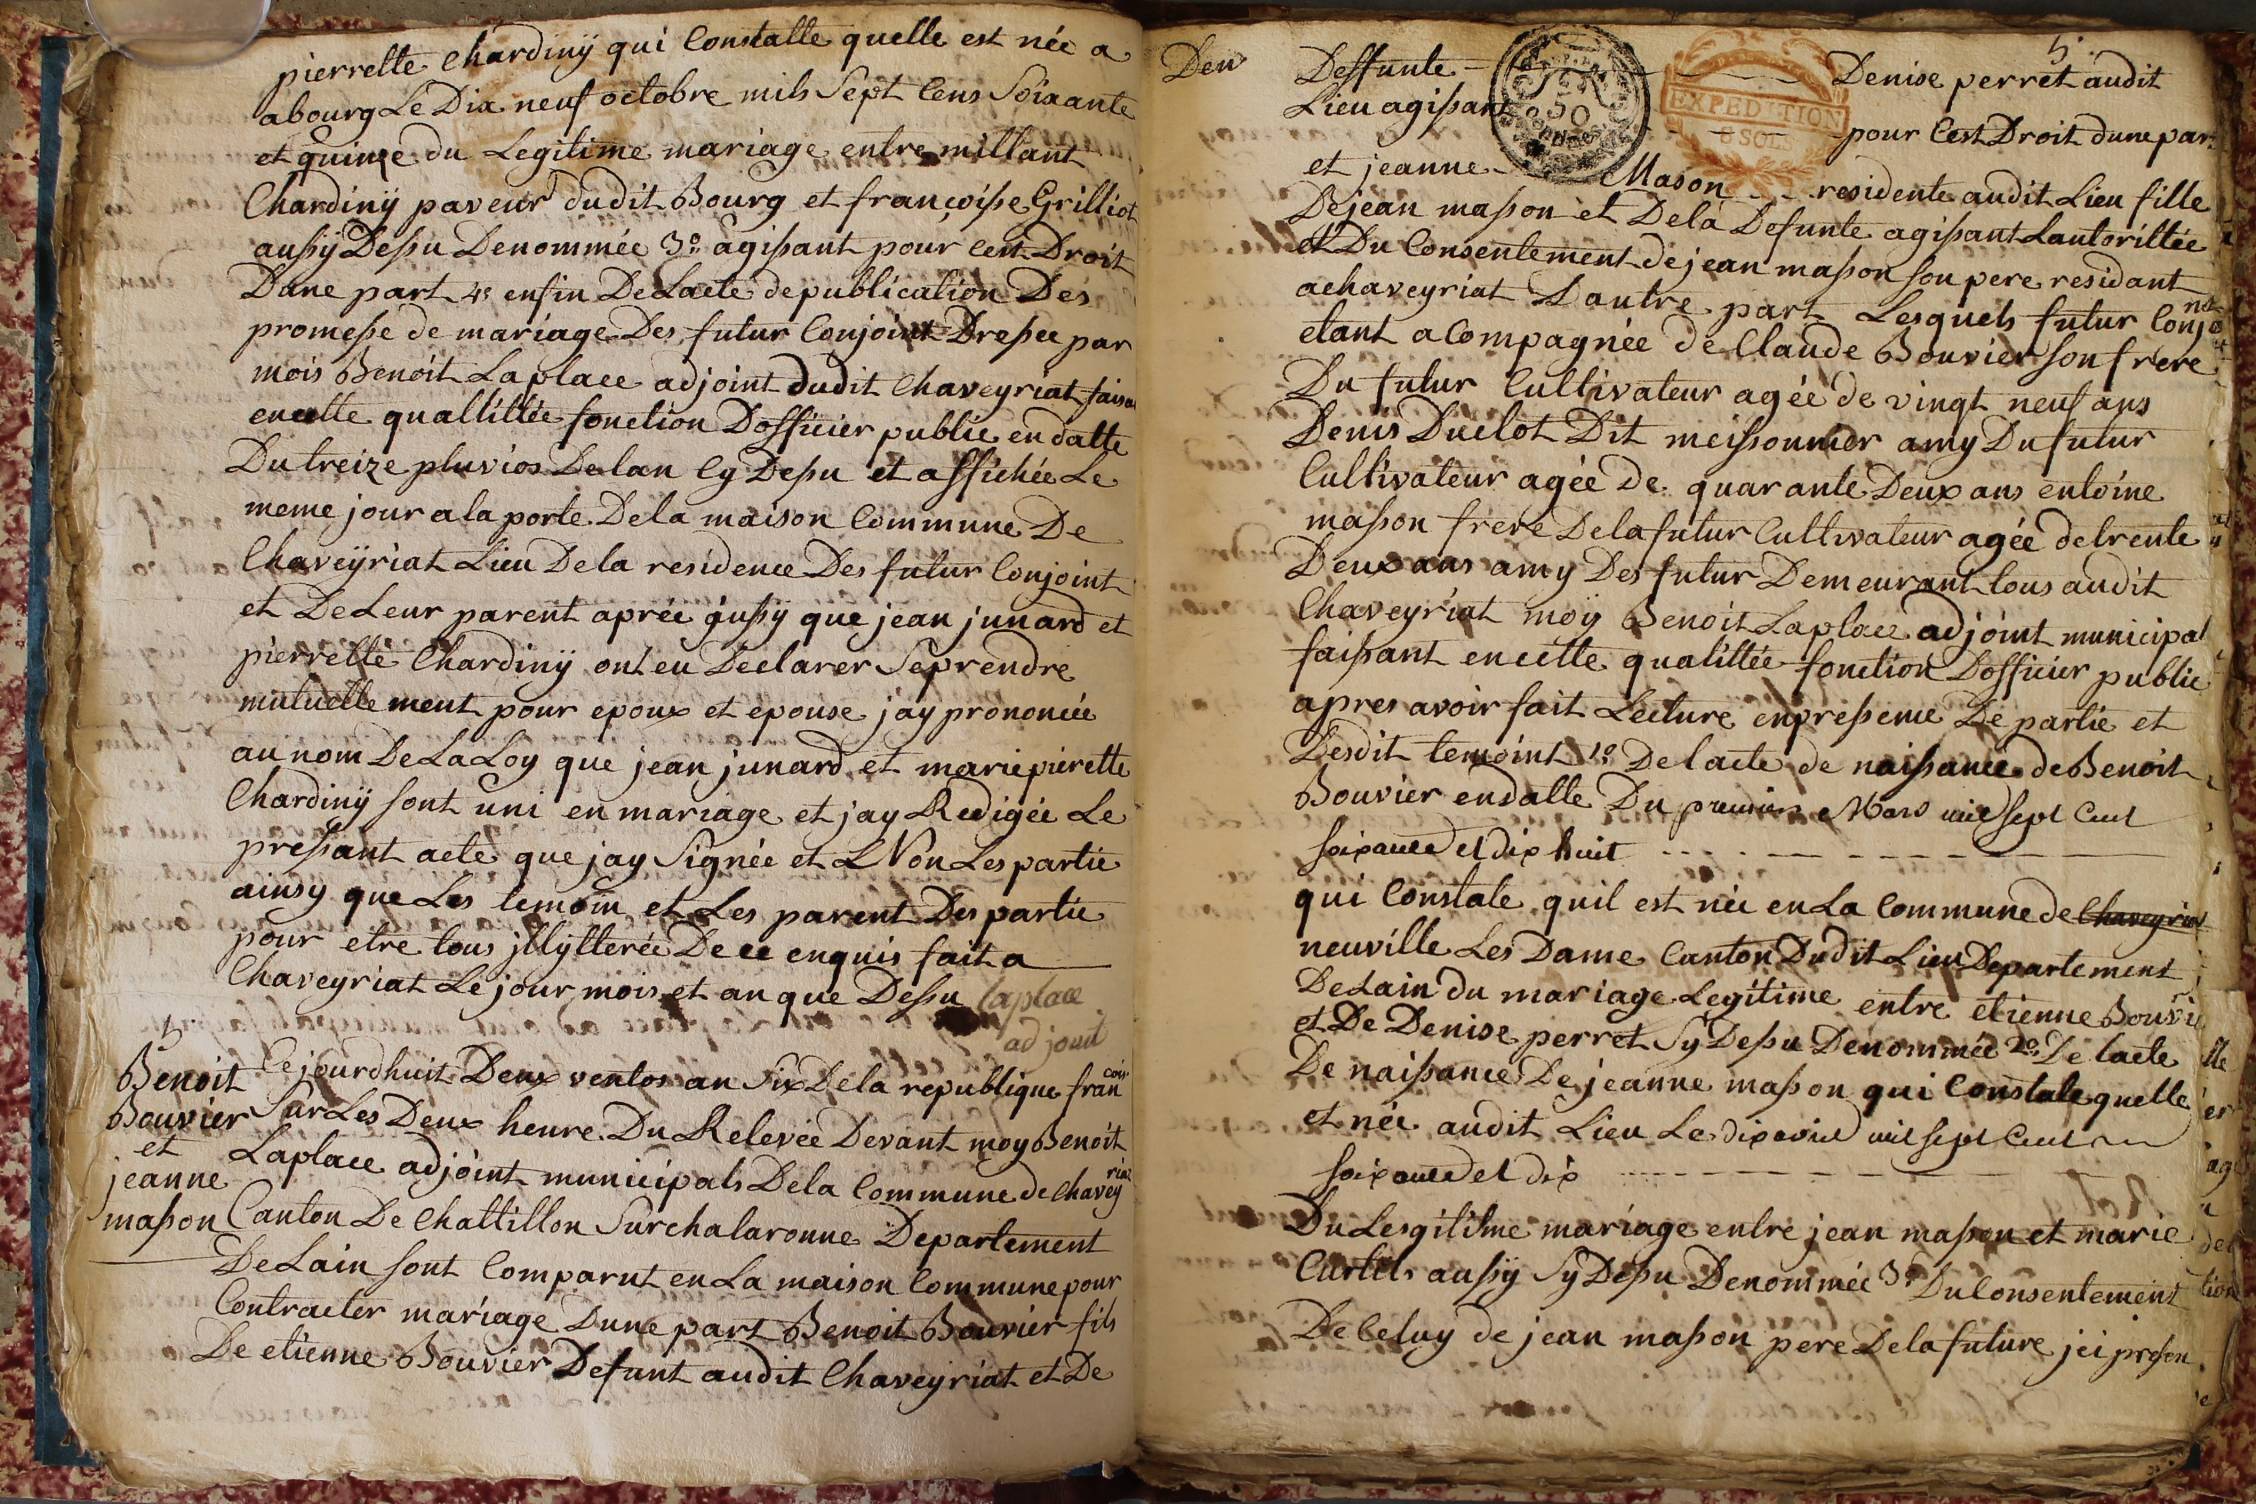 pierrette Chardinÿ qui Constatte quelle est née a
abourg Le Dix neuf octobre mils Sept Cens Soixante
et quinze du Legitime mariage entre millant
Chardinÿ paveur dudit Bourg et françoise Grilliot
aussÿ Dessu Denommée 3º agissant pour Cest Droit
Dune part 4º enfin De Lacte de publication Des
promesse de mariage Des futur Conjoint Dressee par
mois Benoit Laplace adjoint dudit Chaveyriat faisa
encette quallitée fonction Dofficier public en datte
Du treize pluvios De lan Cy Dessu et affichée Le
meme jour a la porte De la maison Commune De
Chaveÿriat Lieu De la residence Des futur Conjoint
et De Leur parent aprée jussÿ que jean junard et
pierrette Chardinÿ ont eu Declarer Se prendre
mutuelle ment pour epoux et epouse jay prononcée
au nom De La Loy que jean junard et marie pierette
Chardinÿ sont uni en mariage et jay Redigée Le
pressant acte que jay Signée et L Non Les partie
ainsy que Les temoin et Les parent Des partie
pour etre tous jllytterée De ce enquis fait a
Chaveyriat Le jour mois et an que Dessu Laplace
adjouit
Benoit
Bouvier
et
jeanne
masson
Cejourdhuit Deux ventos an Six De la republique francois
Sur Les Deux heure Du Relevée Devant moy Benoit
Laplace adjoint municipals De la Commune de Chaveyriat
Canton De Chattillon Sur chalaronne Departement
De Lain sont Comparut en La maison Commune pour
Contracter mariage Dune part Benoit Bouvier fils
De etienne Bouvier Defunt audit Chaveyriat et De
5.
Den Deffunte Denise perret audit
50
EXPEDITION
8 SOLS
Lieu agissant pour Cest Droit dune par
et jeanne Mason residente audit Lieu fille
De jean masson et De la Defunte agissant Lautorittée
et Du Consentement de jean masson son pere residant
a chaveyriat Dautre part Lesquels futur Conjo
etant a Compagnée de Claude Bouvier son frere
Du futur Cultivateur agée de vingt neuf ans
Denis Duclot Dit meissonnier amy Du futur
Cultivateur agée De quarante Deux ans entoine
masson frere De la futur Cultivateur agée de trente
Deux ans amy Des futur Demeurant tous audit
Chaveyriat moÿ Benoit Laplace adjoint municipal
faissant encette qualittée fonction Dofficier public
apres avoir fait Lecture enpressence De partie et
Desdit temoint 1º De lacte de naissance de Benoit
Bouvier endatte Du premier Mars mil sept Cent
soixante et dix huit
qui Constate quil est née en La Commune de Chaveyriat
neuville Les Dame Canton Dudit Lieu Departement
De Lain du mariage Legitime entre etienne Bouvi
et De Denise perret Sy Dessu Denommée 2º De lacte
De naissance De jeanne masson qui Constate quelle
et née audit Lieu Le dix avril mil sept Cent
soixante et dix
Du Lesgitisme mariage entre jean masson et marie
Curtels aussÿ Sy Dessu Denommée 3º Du Consentement
De Celuy de jean masson pere De la future jci presen